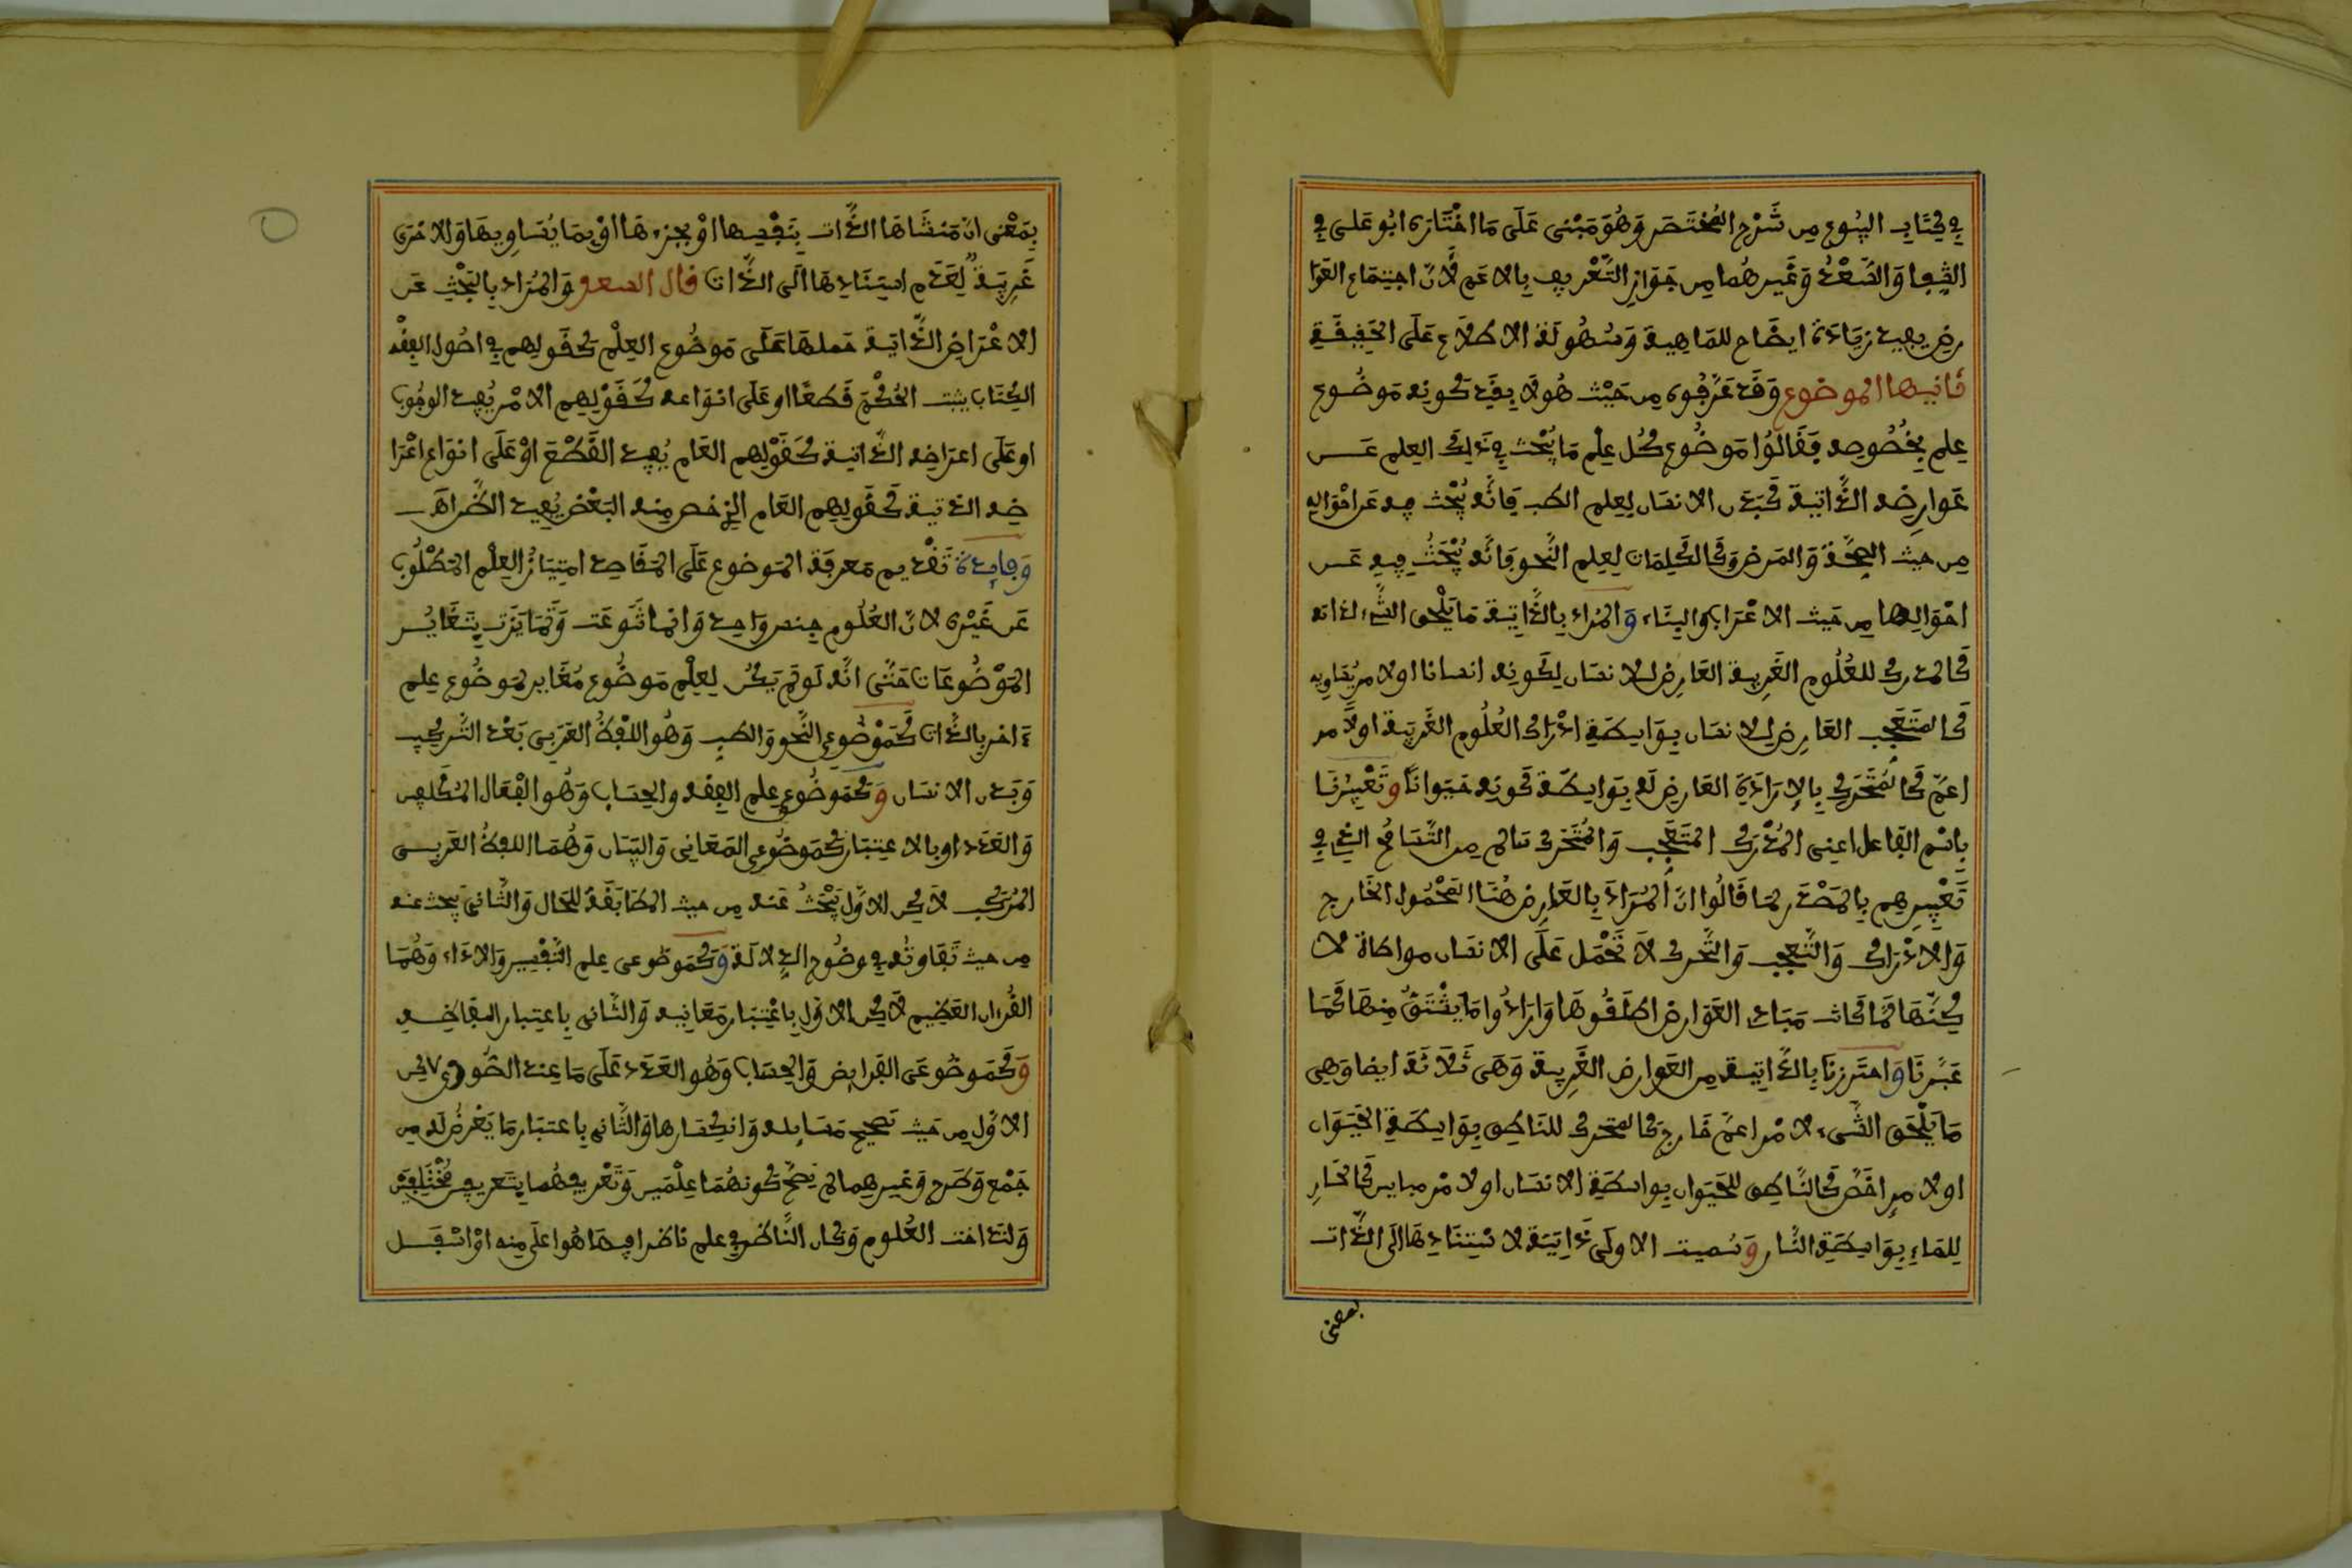 في كتاب البيوع من شرح المختصر وهو مبنى على ما اختاره ابو على في
الشفا والسعد وغيرهما من جواز التعريف بالاعم لأن اجتماع العوا
رض يفيد زيادة ايضاح للماهية وسهولة الاطلاع على الحقيقة
ثانيها الموضوع وقد عرفوه من حيث هو لا بقيد كونه موضوع
علم بخصوصه فقالوا موضوع كل علم ما يبحث في ذلك العلم عن
عوارضه الذاتية كبدن الانسان لعلم الطب فإنه يبحث فيه عن احواله
من حيث الصحة والمرض وكالكلمات لعلم النحو فإنه يبحث فيه عن
احوالها من حيث الاعراب والبناء والمراد بالذاتية ما يلحق الشيء لذاته
كالمدرك للعلوم الغريبة العارض للانسان لكونه انسانا اولامر يساويه
كالمتعجب العارض للانسان بواسطة ادراك العلوم الغريبة اولامر
اعم كالمتحرك بالارادة العارض له بواسطة كونه حيوانا وتعبيرنا
باسم الفاعل اعنى المدرك المتعجب والمتحرك سالم من التسامح الذي في
تعبيرهم بالمصدر لما قالوا ان المراد بالعارض هنا المحمول الخارج
والادراك والتعجب والتحرك لا تحمل على الانسان مواطاة
كنها لما كانت مبادئ العوارض اطلقوها وارادوا ما يشتق منها كما
عبرنا واحترزنا بالذاتية من العوارض الغريبة وهى ثلاثة ايضا وهي
ما يلحق الشيء لامر اعم خارج كالمتحرك للناطق بواسطة الحيوان
اولامر اخص كالناطق للحيوان بواسطة الانسان اولامر مباين كالحار
للماء بواسطة النار وسميت الاولى ذاتية لاستنادها الى الذات
بمعنى
بمعنى ان منشاها الذات بنفسها او بجزءها او بما يساويها والاخرى
غريبة لعدم استنادها الى الذات قال السعد والمراد بالبحث عن
الاعراض الذاتية حملها على موضوع العلم كقولهم في اصول الفقه
الكتاب يثبت الحكم قطعا او على انواعه كقولهم الامر يفيد الوجوب
او على اعراضه الذاتية كقولهم العام يفيد القطع او على انواع اعرا
ضه الذتية كقولهم العام الذي خص منه البعض يفيد الظن اهـ
وفايدة تقديم معرفة الموضوع على المقاصد امتياز العلم المطلوب
عن غيره لان العلوم جنس واحد وانما تنوعت وتمايزت بتغاير
الموضوعات حتى انه لو لم يكن لعلم موضوع مغاير لموضوع علم
ءاخر بالذات كموضوعى النحو والطب وهو اللفظ العربى بعد التركيب
وبدن الانسان وكموضوعي علم الفقه والحساب وهو افعال المكلفين
والعدد او بالاعتبار كموضوعي المعاني والبيان وهما اللفظ العربى
المركب لاكن الاول يبحث عنه من حيث المطابقة للحال والثاني يبحث عنه
من حيث تفاوته في وضوح الدلالة وكموضوعى علم التفسير والاداء وهما
القرءان العظيم لاكن الاول باعتبار معانيه والثانى باعتبار الفاظه
وكموضوعى الفرايض والحساب وهو العدد على ما عند الصوري لاكن
الاول من حيث تصحيح مسايله وانكسارها والثاني باعتبار ما يعرض له من
جمع وطرح وغيرهما لم يصح كونهما علمين وتعريفهما بتعريفين مختلفين
ولتداخت العلوم وكان الناظر في علم ناظرا فيما هو اعلى منه او اسفل